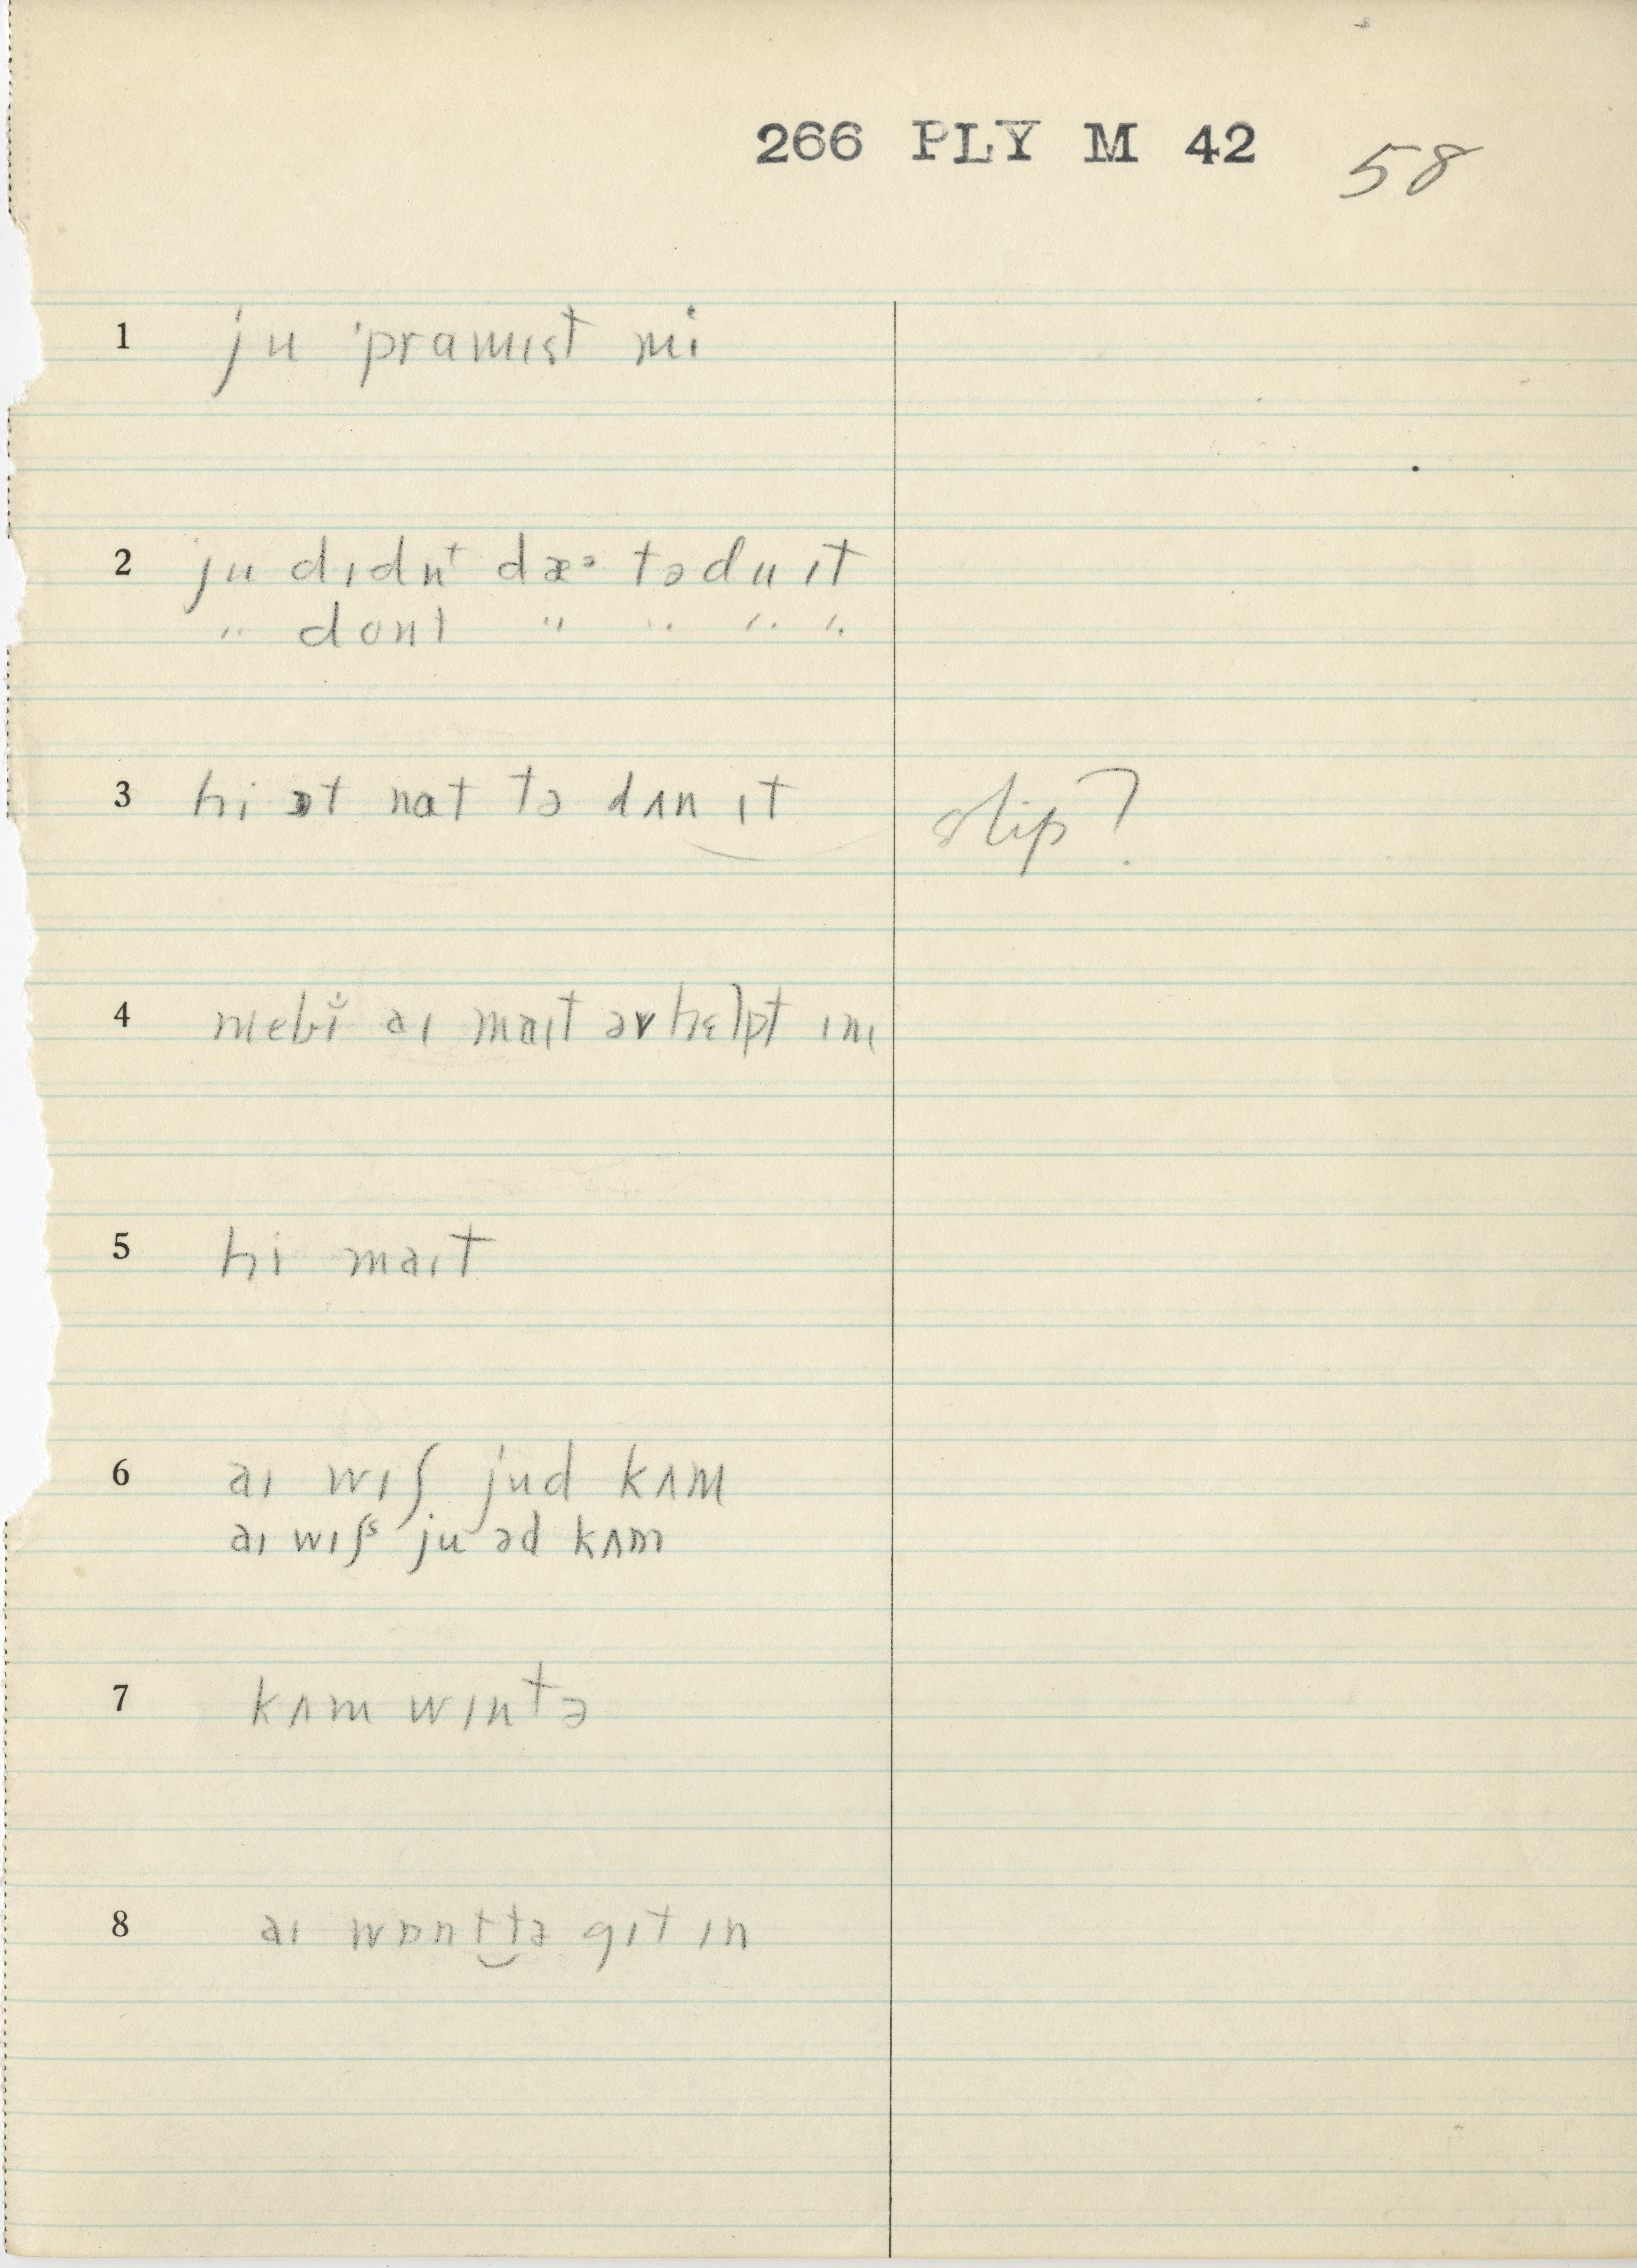 266 PLY M 42 58
1 ju ˈpramɪst mi
2 ju dɪdnᵗ dæᵊ tə du ɪt
" dont " " " "
3 hi ɔt nat tə dʌn ɪt slip?
4 mebĭ aɪ maɪt əv hɛlpt ɪm
5 hi maɪt
6 aɪ wɪʃ jud kʌm
aɪ wɪʃˢ ju əd kʌm
7 kʌm wɪntə
8 aɪ wɒnt‿tə gɪt ɪn